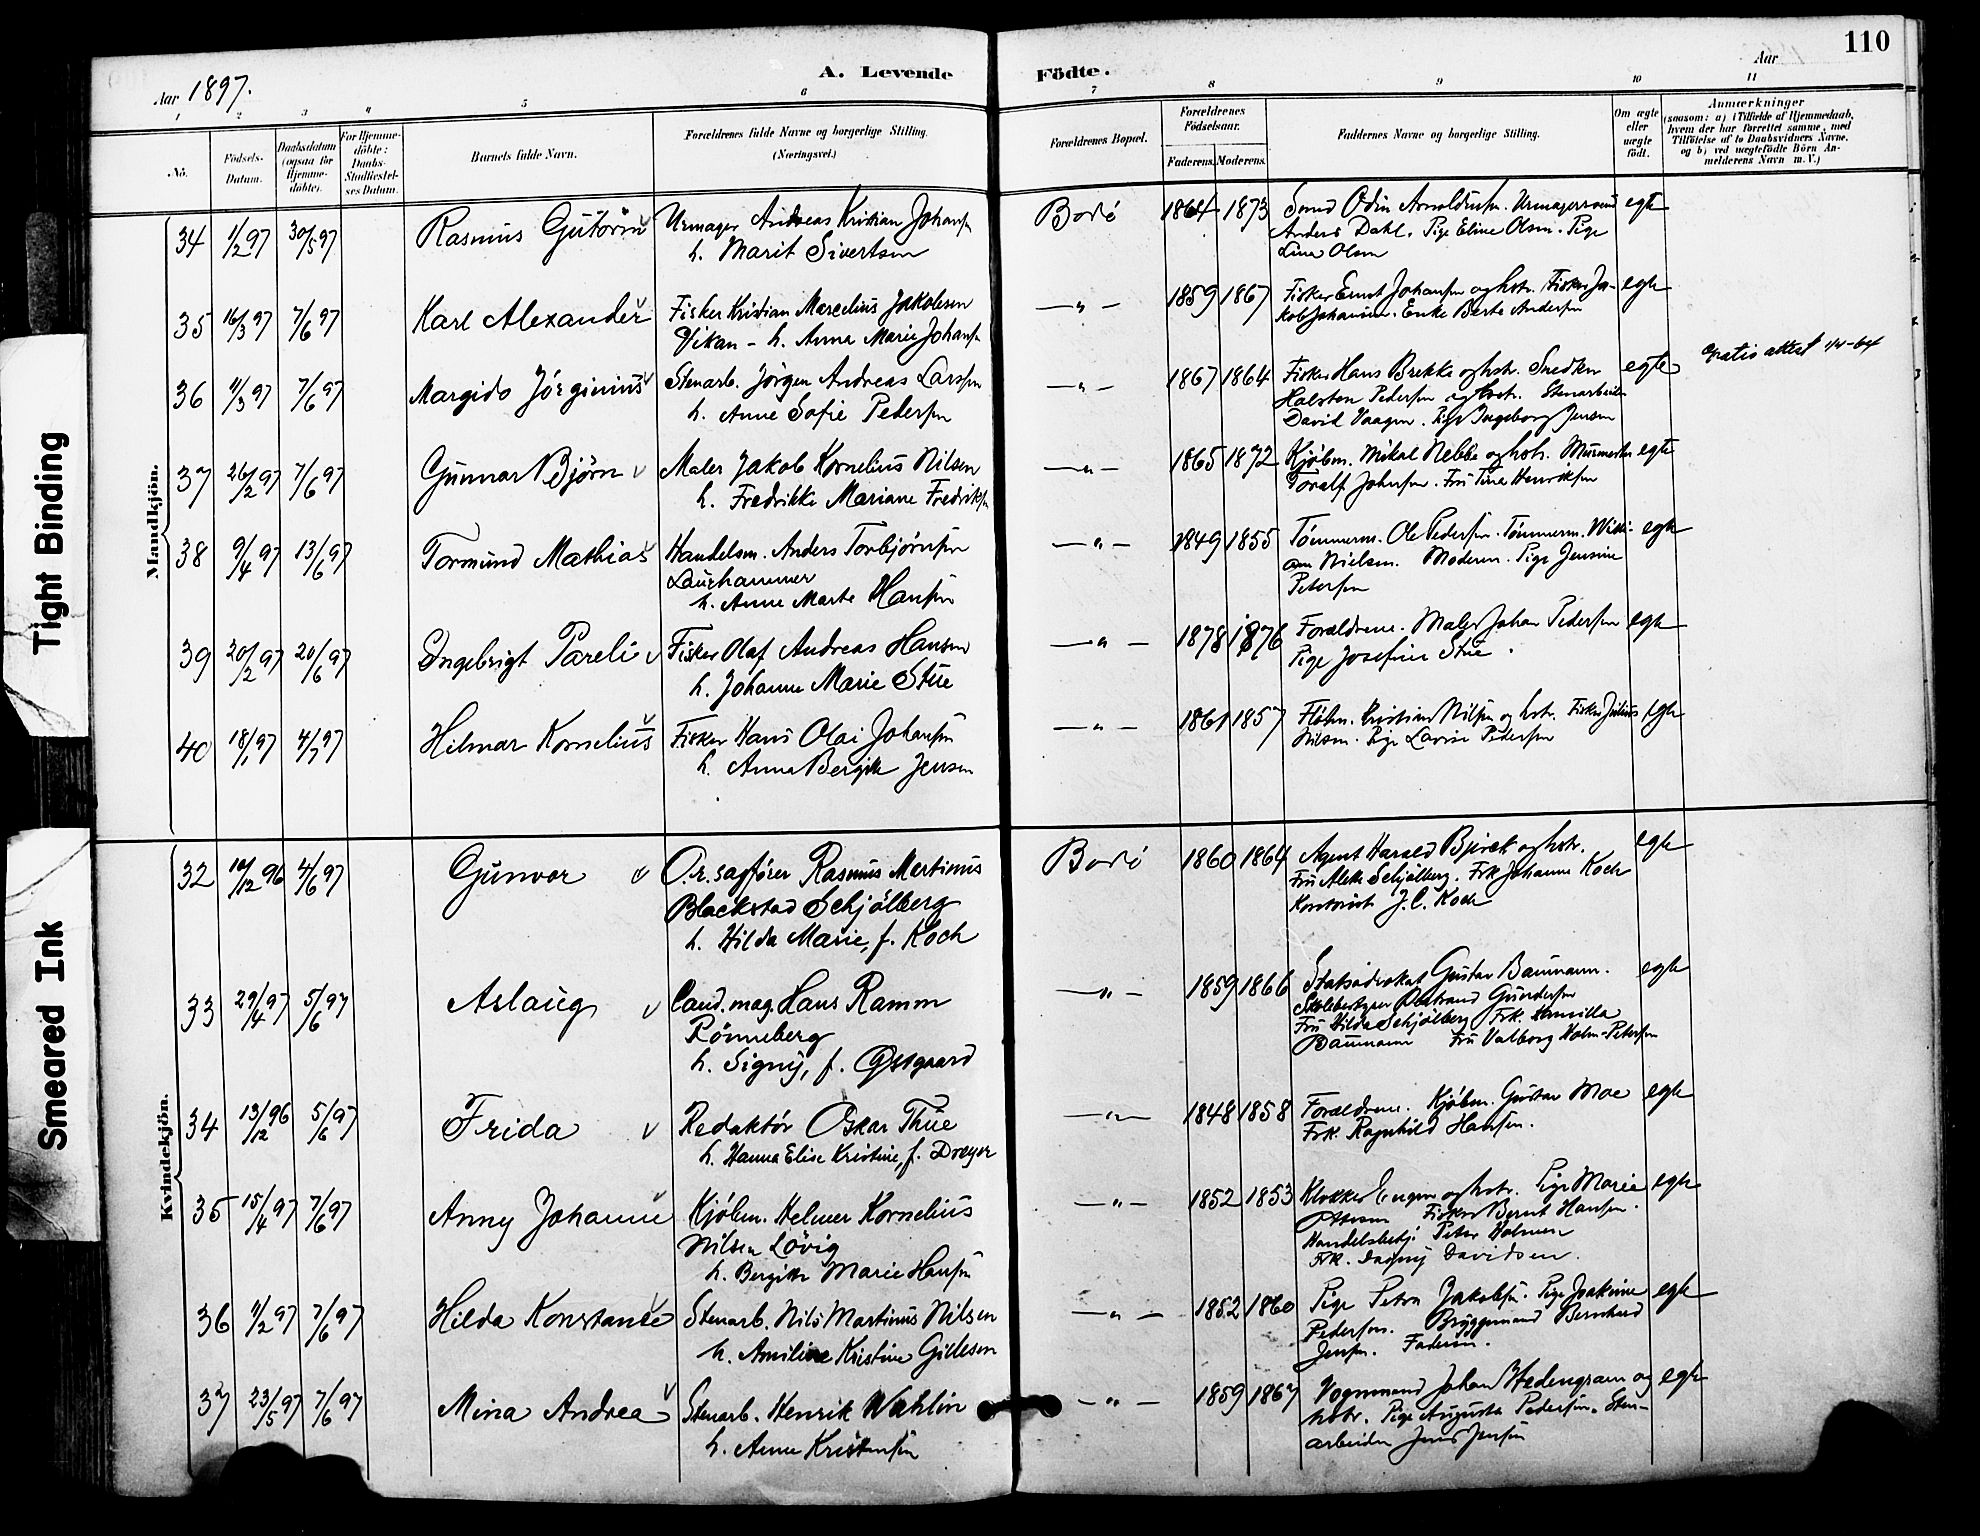 110
A. Levende Födte.
Aar 1897.
Aar
1 2 3 4 5 6 7 8 9 10 11
No.
Födsels-Datum.
Daabsdatum (ogsaa for Hjemme-döbte).
For Hjemme-döbte: Daabs-Stadfæstel-ses Datum.
Barnets fulde Navn.
Forældrenes fulde Navne og borgerlige Stilling. (Næringsvei.)
Forældrenes Bopæl.
Forældrenes Födselsaar.
Faderens. Moderens.
Faddernes Navne og borgerlige Stilling.
Om ægte eller uægte födt.
Anmærkninger
(saasom: a) i Tilfælde af Hjemmedaab, hvem der har forrettet samme, med Tilföielse af to Daabsvidners Navne, og b) ved uægtefödte Börn An-melderens Navn m. V.)
Mandkjön.
34 1/2 97 30/5 97 Rasmus Gutorm Urmager Andreas Kristian Johansen Bodø 1864 1873 Svend Odin Arnoldusen. Urmagersvend egte
h. Marit Sivertsen Anders Dahl. Pige Eline Olsen. Pige
Lina Olsen
35 16/3 97 7/6 97 Karl Alexander Fisker Kristian Marcelius Jakobsen —"— 1859 1867 Fisker Ernst Johansen og hstr. Fisker Ja- egte
Vikan - h. Anna Marie Johansen kob Johansen. Enke Berte Andersen
36 11/3 97 7/6 97 Margido Jørginius Stenarb. Jørgen Andreas Larssen —"— 1867 1864 Fisker Hans Brekke og hstr. Snedker egte gratis attest 1/4-64
h. Anne Sofie Pedersen Halsten Pedersen og hstr. Stenarbeider
David Vaagen. Pige Ingeborg Jensen
37 26/2 97 7/6 97 Gunnar Bjørn Maler Jakob Kornelius Nilsen —"— 1865 1872 Kjøbm. Mikal Nebbe og hstr. Murmester egte
h. Fredrikke Mariane Fredriksen Toralf Johnsen. Fru Tina Henriksen
38 9/4 97 13/6 97 Tormund Mathias Handelsm. Anders Torbjørnsen —"— 1849 1855 Tømmerm. Ole Pedersen. Tømmerm. Willi- egte
Lauxhammer am Nielsen. Moderen. Pige Jensine
h. Anne Marte Hansen Petersen
39 20/2 97 20/6 97 Ingebrigt Pareli Fisker Olaf Andreas Hansen —"— 1878 1876 Forældrene. Maler Johan Pedersen egte
h. Johanne Marie Stue Pige Josefine Stue.
40 18/1 97 4/7 97 Hilmar Kornelius Fisker Hans Olai Johansen —"— 1861 1857 Fløtm. Kristian Nilsen og hstr. Fisker Julius egte
h. Anna Bergitte Jensen Nilsen. Pige Lavise Pedersen
Kvindekjön.
32 10/12 96 4/6 97 Gunvor O.r.sagfører Rasmus Martinus Bodø 1860 1864 Agent Harald Bjerck og hstr. egte
Blackstad Schjølberg Fru Alette Schjølberg. Frk Johanne Koch
h. Hilda Marie, f. Koch Kontorist J.C. Koch
33 29/4 97 5/6 97 Aslaug Cand. mag. Hans Ramm —"— 1859 1866 Statsadvokat Gustav Baumann. egte
Rønneberg Skolebestyrer Bertrand Gundersen
h. Signy, f. Østgaard Fru Hilda Schjølberg Frk. Hansilla
Baumann Fru Valborg Holm-Petersen
34 13/12 96 5/6 97 Frida Redaktør Oskar Thue —"— 1848 1858 Forældrene. Kjøbm. Gustav Moe egte
h. Hanna Elise Kristine, f. Dreyer Frk. Ragnhild Hansen.
35 15/4 97 7/6 97 Anny Johanne Kjøbm. Helmer Kornelius —"— 1852 1853 Klokker Eugen og hstr. Pige Marie egte
Nilsen Løvig Ottesen Fisker Bernt Hansen.
h. Bergitte Marie Hansen Handelsbetj. Peter Holmen
Frk. Dagny Davidsen.
36 11/2 97 7/6 97 Hilda Konstanse Stenarb. Nils Martinus Nilsen —"— 1852 1860 Pige Petra Jakobsen. Pige Joakime egte
h. Amiline Kristine Gillesen Pedersen. Bryggemand Bernhard
Jensen. Faderen.
37 23/5 97 7/6 97 Mina Andrea Stenarb. Henrik Wahlin —"— 1859 1867 Vognmand Johan Hedengran og egte
h. Anne Kristensen hstr. Pige Augusta Pedersen. Sten-
arbeider Jens Jensen
Tight Binding
Smeared Ink